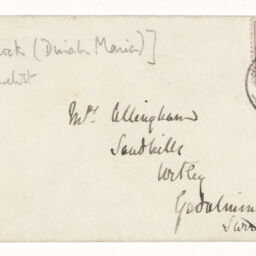 ock (Dinah Maria)]
Mrs Allingham
Sandhills
Witley
Godalming
Surr